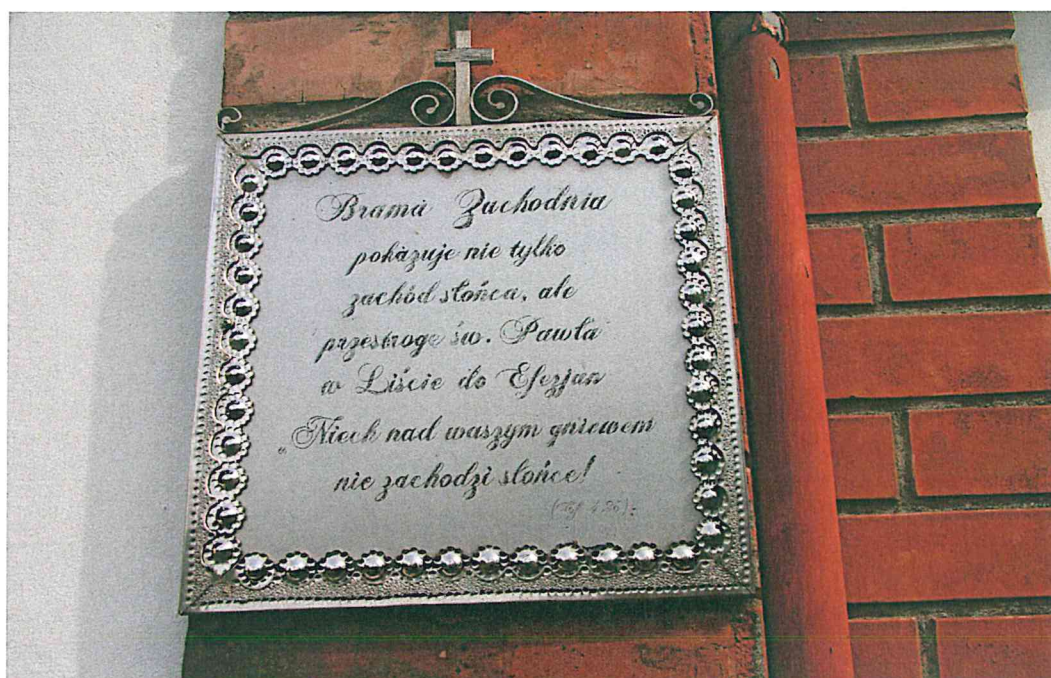 Brama Zachodnia
pokazuje nie tylko
zachód słońca, ale
przestrogę św. Pawła
w Liście do Efezjan
„Niech nad waszym gniewem
nie zachodzi słońce!
(Ef 4.26).